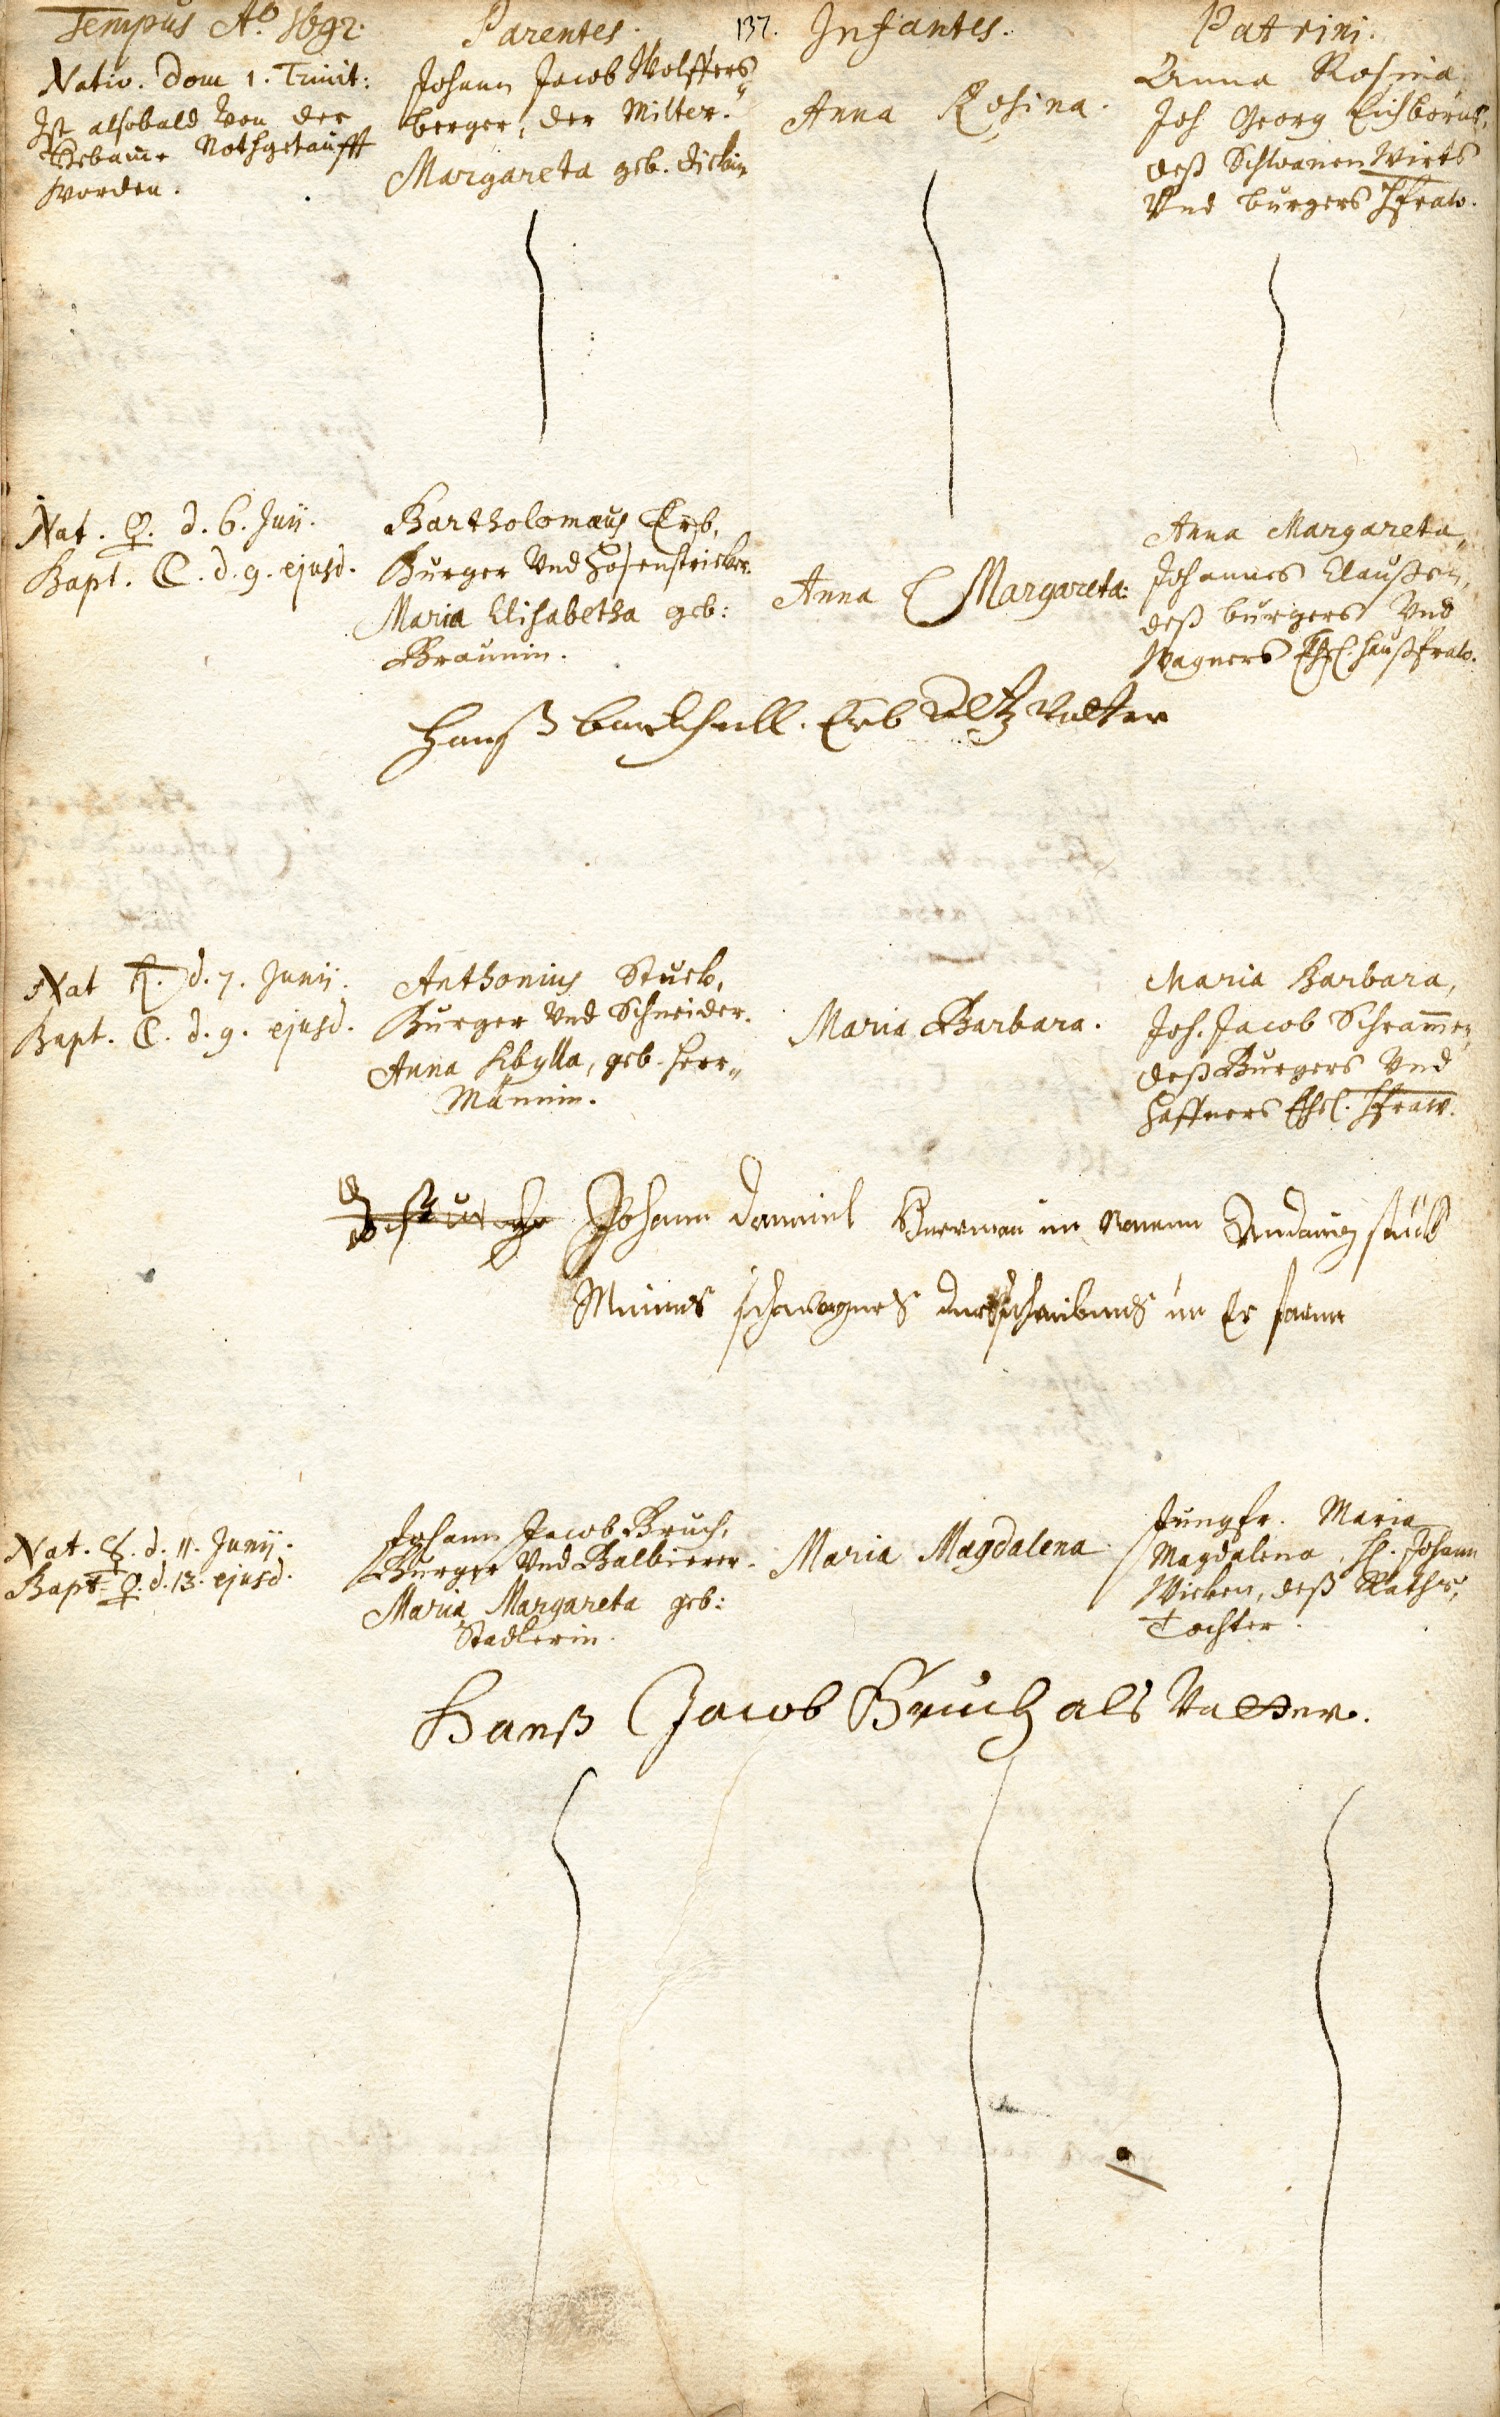 Tempus Aº. 1692.
Parentes.
137.
Infantes.
Patrini.
Nativ. Dom 1. Trinit:
Ist alsobald von der
Hebam̄e Nothgetaufft
worden.
Johann Jacob Wolffers„
berger, der Müller.
Margareta geb.
Anna Rosina.
Anna Rosina
Joh Georg Eichborns,
deß Schwanen Wirts
Vnd burgers Hfraw.
Nat. ♀. d. 6. Junij.
Bapt. ☾. d. 9. ejusd.
Bartholomæus Erb,
Burger Vnd Hosenstricker.
Maria Elisabetha geb:
Braunin.
Anna Margareta:
Anna Margareta,
Johannes Claußen,
deß burgers Vnd
Wagners Ehel. haußfraw.
Hanß Erb Vatter
Nat ♄. d. 7. Junij.
Bapt. ☾. d. 9. ejusd.
Anthonius Stuck,
Burger Vnd Schneider.
Anna Sibylla, geb. Herr„
Männin.
Maria Barbara.
Maria Barbara,
Joh. Jacob Schram̄en,
deß Burgers Vnd
Haffners Ehel. Hfraw.
Johann Daniel Hermann im Namen
Meines schwagers
Nat. ☿. d. 11. Junij.
Bapt. ♀. d. 13. ejusd.
Johann Jacob Bruch,
Burger Vnd Balbierer.
Maria Margareta geb:
Stadlerin.
Maria Magdalena.
Jungfr. Maria
Magdalena, H. Johann
Wicken, deß Raths,
Tochter.
Hanß Jacob Bruch als Vatter.